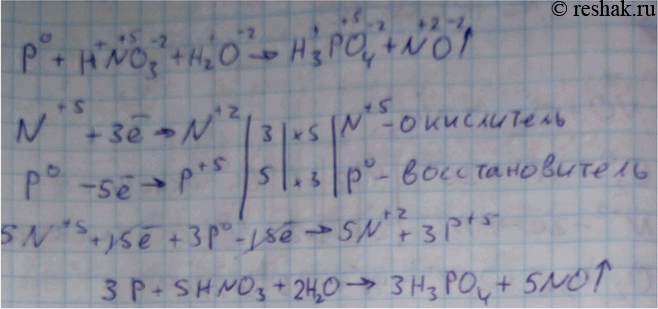 © reshak.ru
P⁰ + H⁺N⁺⁵O₃⁻² + H₂⁺O⁻² → H₃⁺P⁺⁵O₄⁻² + N⁺²O⁻²↑
N⁺⁵ + 3ē → N⁺² | 3 | ×5 | N⁺⁵ - окислитель
P⁰ - 5ē → P⁺⁵ | 5 | ×3 | P⁰ - восстановитель
5N⁺⁵ + 15ē + 3P⁰ - 15ē → 5N⁺² + 3P⁺⁵
3P + 5HNO₃ + 2H₂O → 3H₃PO₄ + 5NO↑